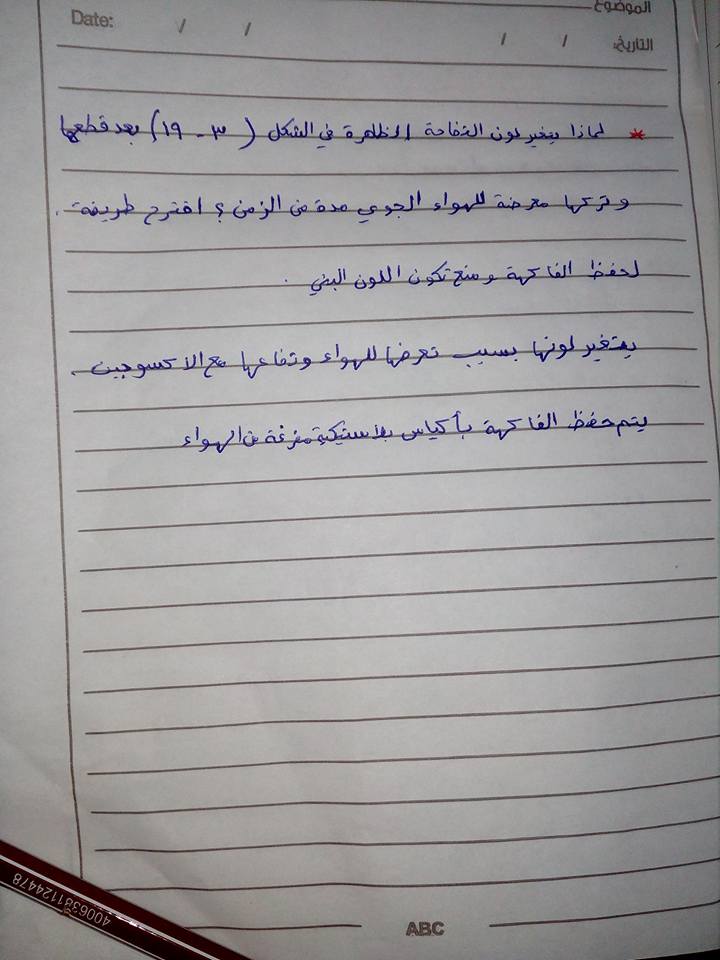 الموضوع
Date: / / / / التاريخ:
* لماذا يتغير لون التفاحة الظاهرة في الشكل (٣ - ١٩) بعد قطعها
وتركها معرضة للهواء الجوي مدة من الزمن؟ اقترح طريقة.
لحفظ الفاكهة ومنع تكون اللون البني.
يتغير لونها بسبب تعرضها للهواء وتفاعلها مع الاكسوجين.
يتم حفظ الفاكهة بأكياس بلاستيكية مفرغة من الهواء
4006381124478
ABC